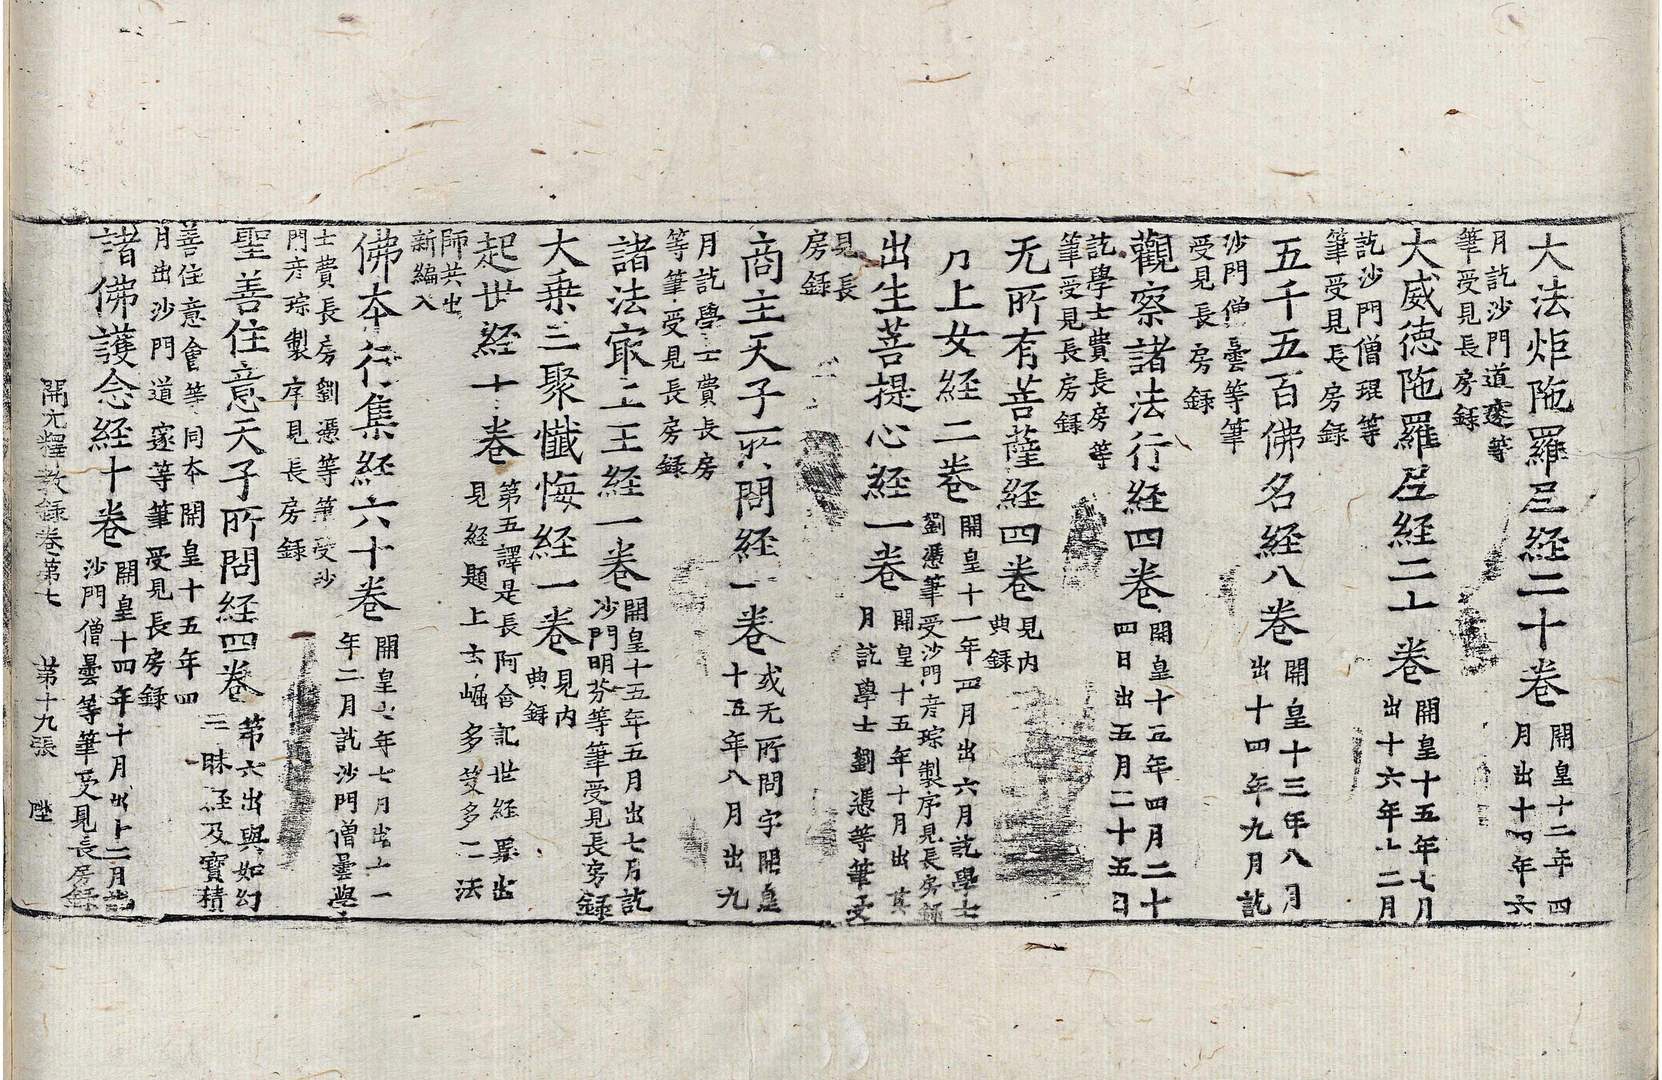 大法炬陁羅尼経二十卷 開皇十二年四
月出十四年六
月訖沙門道邃等
筆受見長房録
大威徳陁羅尼経二十卷 開皇十五年七月
出十六年十二月
訖沙門僧琨等
筆受見長房録
五千五百佛名経八卷 開皇十三年八月
出十四年九月訖
沙門僧曇等筆
受見長房録
觀察諸法行経四卷 開皇十五年四月二十
四日出五月二十五日
訖學士費長房等
筆受見長房録
无所有菩薩経四卷 見内
典録
月上女経二卷 開皇十一年四月出六月訖學士
劉憑筆受沙門彦琮製序見長房録
出生菩提心経一卷 開皇十五年十月出其
月訖學士劉憑等筆受
見長
房録
商主天子所問経一卷 或无所問字開皇
十五年八月出九
月訖學士費長房
等筆受見長房録
諸法㝡上王経一卷 開皇十五年五月出七月訖
沙門明芬等筆受見長房録
大乗三聚懺悔経一卷 見内
典録
起世経十卷 第五譯是長阿含記世経異出
見経題上云崛多笈多二法
師共出
新編入
佛本行集経六十卷 開皇七年七月出十一
年二月訖沙門僧曇學
士費長房劉憑等筆受沙
門彦琮製序見長房録
聖善住意天子所問経四卷 第六出與如幻
三昧経及寶積
善住意會等同本開皇十五年四
月出沙門道邃等筆受見長房録
諸佛護念経十卷 開皇十四年十月出十二月訖
沙門僧曇等筆受見長房録
開元釋教録卷第七 第十九張 陛